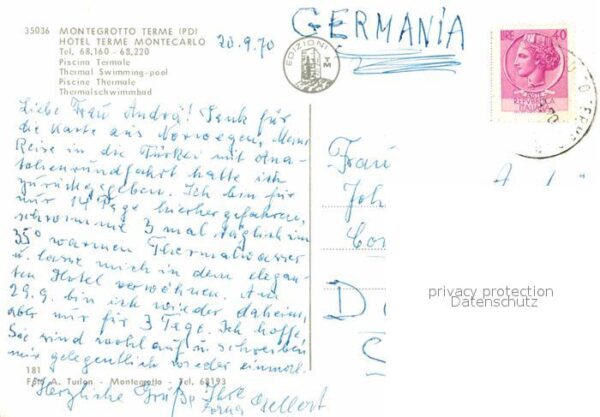 35036 MONTEGROTTO TERME (PD)
HOTEL TERME MONTECARLO
Tel. 68.160 - 68.220
Piscina Termale
Thermal Swimming-pool
Piscine Thermale
Thermalschwimmbad
20.9.70
GERMANIA
EDIZIONI
TM
LIRE 40
Liebe Frau André! Dank für
die Karte aus Norwegen. Meine
Reise in die Türkei mit Ana-
tolienrundfahrt hatte ich
zurückgegeben. Ich bin für
nur 14 Tage hierher gefahren,
schwimme 3 mal täglich im
35° warmen Thermalwasser
u. lasse mich in dem elegan-
ten Hotel verwöhnen. Am
29.9. bin ich wieder daheim,
aber nur für 3 Tage. Ich hoffe,
Sie sind wohl auf u. schreiben
mir gelegentlich wieder einmal.
Herzliche Grüße Ihre
181
Fot. A. Turlon - Montegrotto - Tel. 68193
Frau
Joh
D
privacy protection
Datenschutz